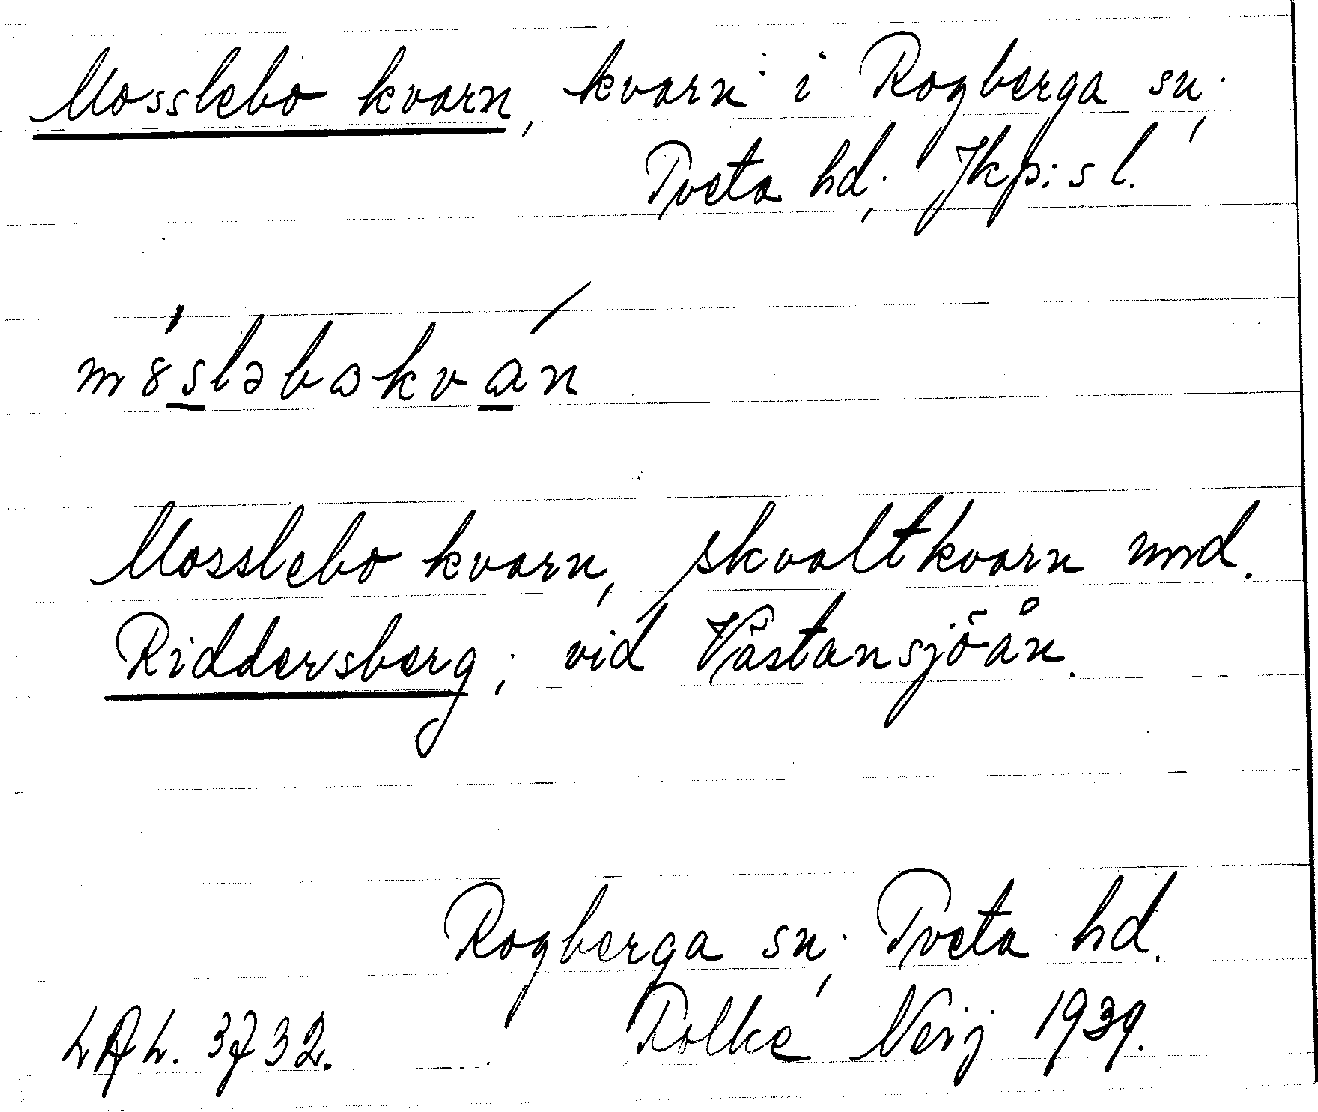 Mosslebo kvarn, kvarn i Rogberga sn;
Tveta hd; Jkp:s l.
m8́sləbωkván
Mosslebo kvarn, skvaltkvarn und.
Riddersberg; vid Västansjöån.
Rogberga sn; Tveta hd.
LAL. 3732. Folke Neij 1939.